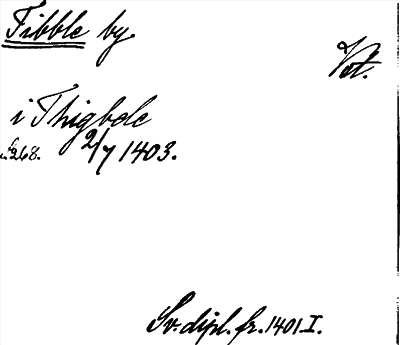 Tibble by.
Vst.
i Thigbole
s. 268. 2/7 1403.
Sv. dipl. fr. 1401 I.